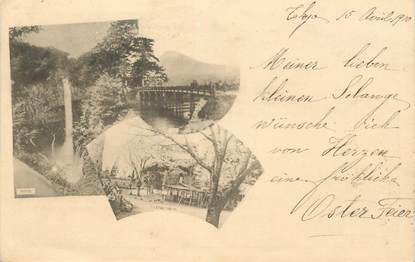 Tokyo 15 April 190
Meiner lieben
kleinen Solange
wünsche ich
von Herzen
eine fröhliche
Oster Feier